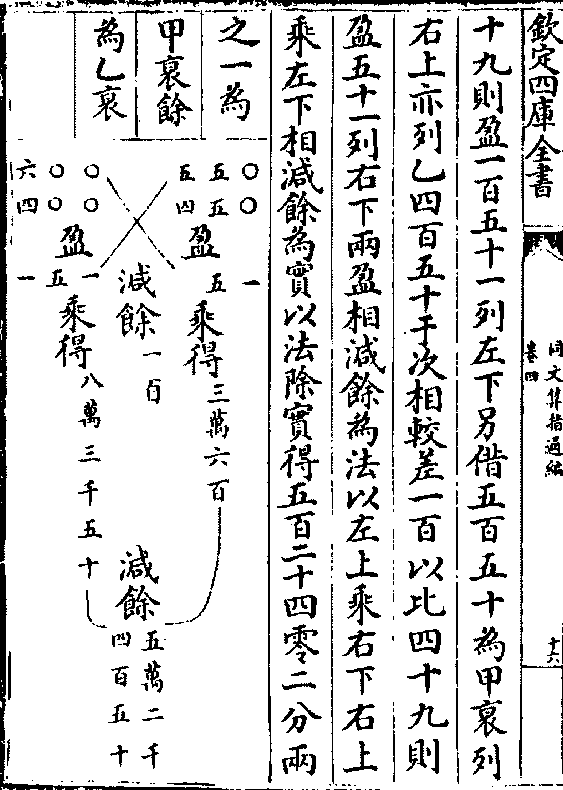 欽定四庫全書
同文算指通編
卷四
十六
十九則盈一百五十一列左下另借五百五十為甲裒列
右上亦列乙四百五十于次相較差一百以比四十九則
盈五十一列右下兩盈相減餘為法以左上乘右下右上
乘左下相減餘為實以法除實得五百二十四零二分兩
之一為
甲裒餘
為乙裒
五五〇
四五〇
盈五一
乘得三萬六百
減餘一百
六〇〇
四〇〇
盈一五一
乘得八萬三千五十
減餘五萬二千
四百五十